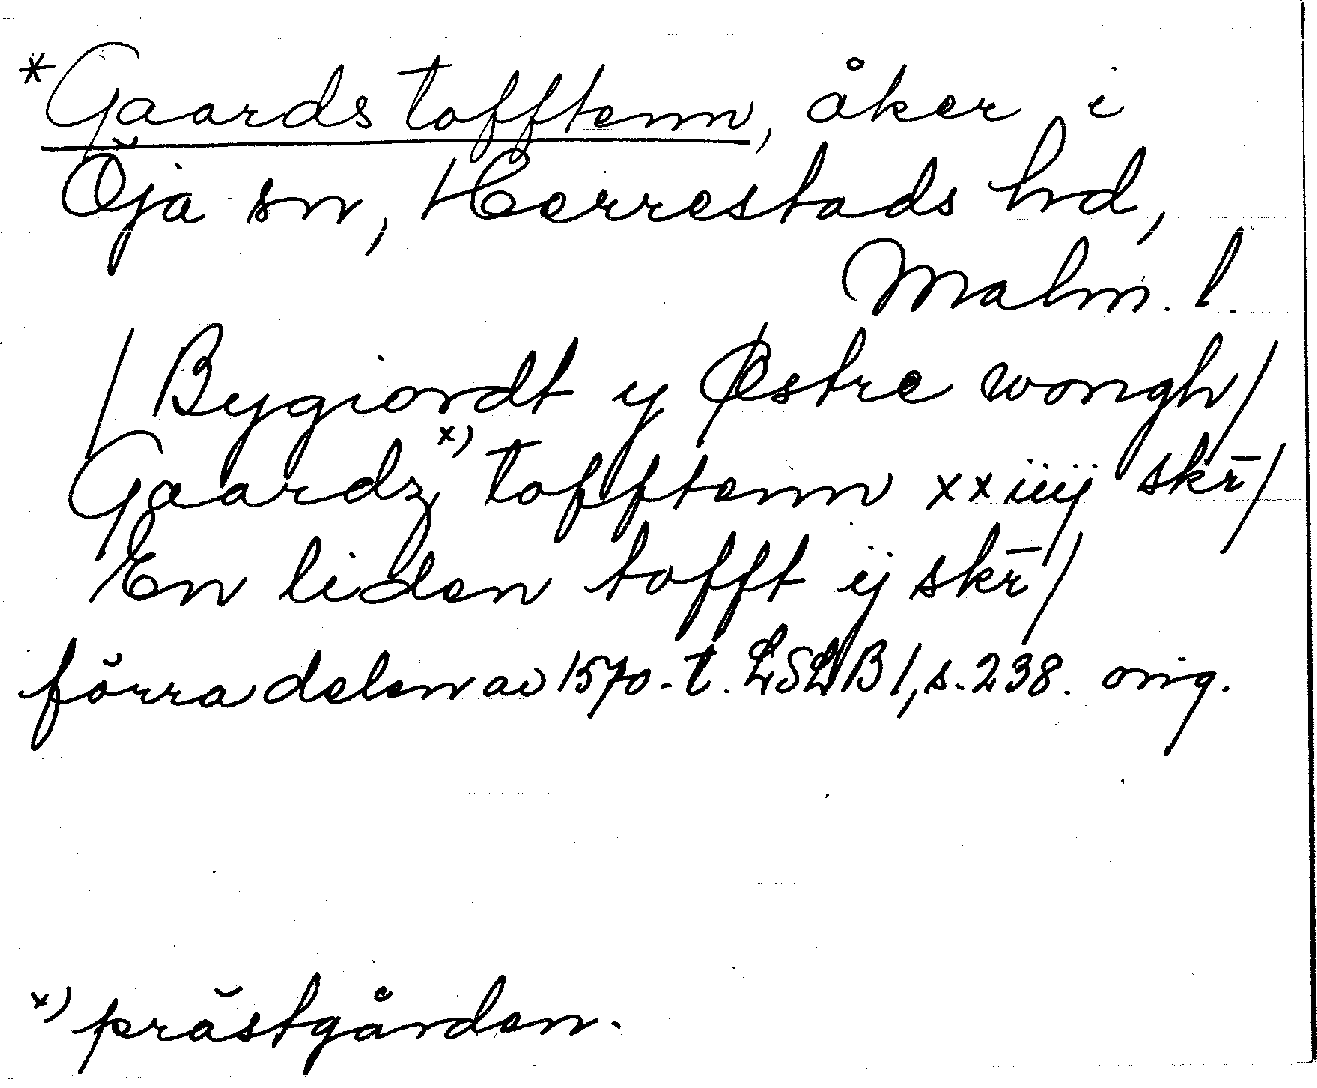 *Gaards tofftenn, åker i
Öja sn, Herrestads hd,
Malm. l.
/ Bygiordt y Østre wongh/
Gaardz x) tofftenn xxiiij skr̄/
En liden tofft ij skr̄/
förra delen av 1570-t. LSLB 1, s. 238. orig.
x) prästgården.